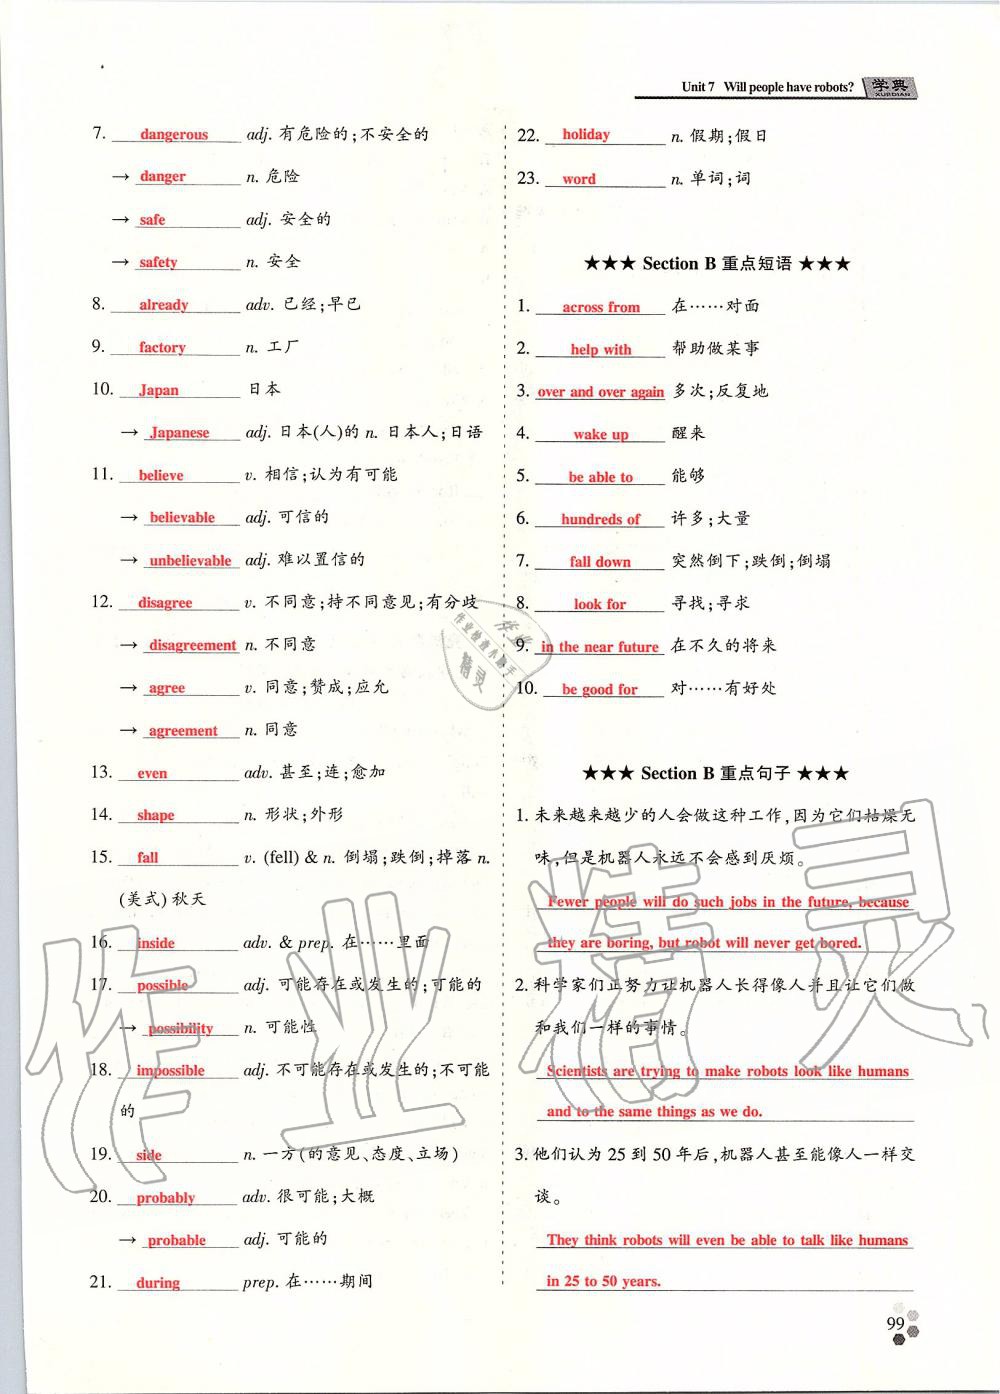 Unit 7 Will people have robots? 学典
XUEDIAN
7. dangerous adj. 有危险的;不安全的
→ danger n. 危险
→ safe adj. 安全的
→ safety n. 安全
8. already adv. 已经;早已
9. factory n. 工厂
10. Japan 日本
→ Japanese adj. 日本(人)的 n. 日本人;日语
11. believe v. 相信;认为有可能
→ believable adj. 可信的
→ unbelievable adj. 难以置信的
12. disagree v. 不同意;持不同意见;有分歧
→ disagreement n. 不同意
→ agree v. 同意;赞成;应允
→ agreement n. 同意
13. even adv. 甚至;连;愈加
14. shape n. 形状;外形
15. fall v. (fell) & n. 倒塌;跌倒;掉落 n.
(美式) 秋天
16. inside adv. & prep. 在……里面
17. possible adj. 可能存在或发生的;可能的
→ possibility n. 可能性
18. impossible adj. 不可能存在或发生的;不可能
的
19. side n. 一方(的意见、态度、立场)
20. probably adv. 很可能;大概
→ probable adj. 可能的
21. during prep. 在……期间
22. holiday n. 假期;假日
23. word n. 单词;词
★★★ Section B 重点短语 ★★★
1. across from 在……对面
2. help with 帮助做某事
3. over and over again 多次;反复地
4. wake up 醒来
5. be able to 能够
6. hundreds of 许多;大量
7. fall down 突然倒下;跌倒;倒塌
8. look for 寻找;寻求
9. in the near future 在不久的将来
10. be good for 对……有好处
★★★ Section B 重点句子 ★★★
1. 未来越来越少的人会做这种工作,因为它们枯燥无
味,但是机器人永远不会感到厌烦。
Fewer people will do such jobs in the future, because
they are boring, but robot will never get bored.
2. 科学家们正努力让机器人长得像人并且让它们做
和我们一样的事情。
Scientists are trying to make robots look like humans
and to the same things as we do.
3. 他们认为 25 到 50 年后,机器人甚至能像人一样交
谈。
They think robots will even be able to talk like humans
in 25 to 50 years.
99
作业精灵
作业
精灵
作业检查小助手